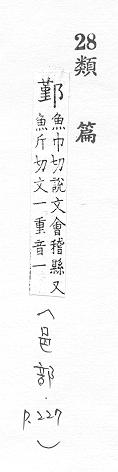 28類 篇
鄞 魚巾切說文會稽縣又
魚斤切文一重音一
(邑部.p.227)